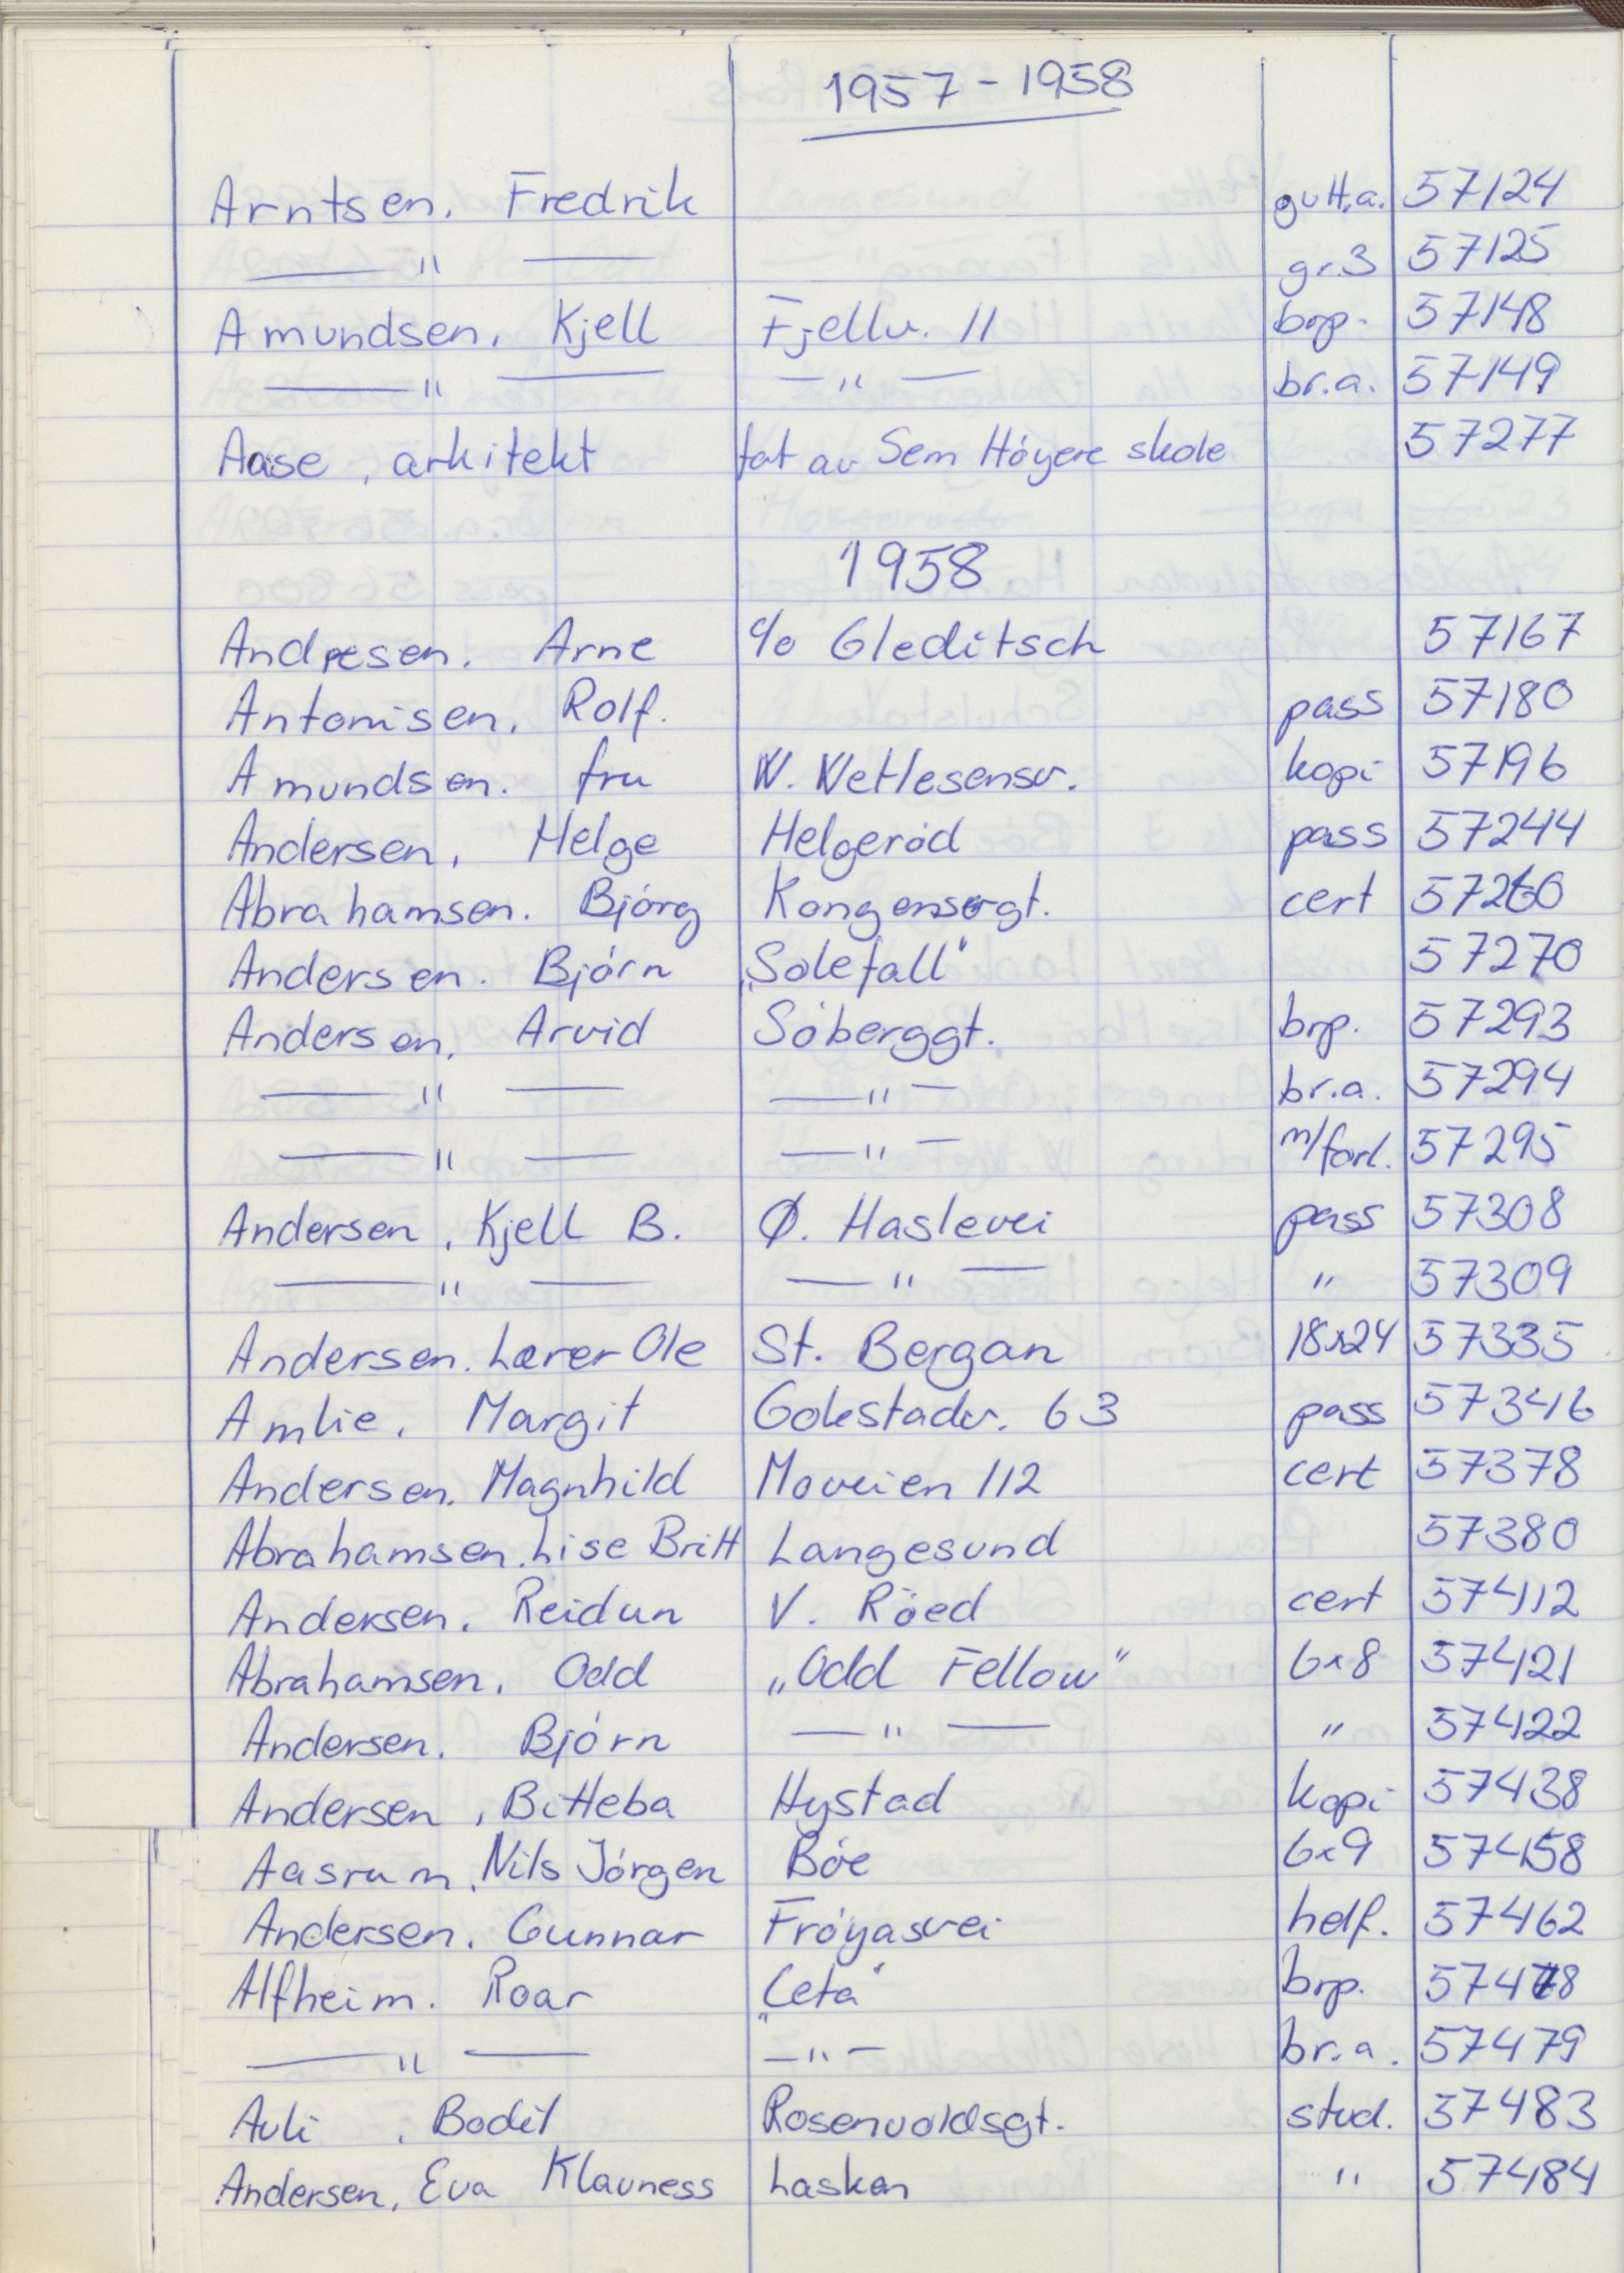 1957 - 1958
Arntsen. Fredrik gutt.a. 57124
— " — gr.3 57125
Amundsen. Kjell Fjellv. 11 brp. 57148
— " — — " — br.a. 57149
Aase, arkitekt tat av Sem Høyere skole 57277
1958
Andresen. Arne c/o Gleditsch 57167
Antonisen. Rolf. pass 57180
Amundsen. fru W. Wetlesensv. kopi 57196
Andersen, Helge Helgerød pass 57244
Abrahamsen. Bjørg Kongensgt. cert 57260
Andersen. Bjørn "Solefall" 57270
Andersen. Arvid Søberggt. brp. 57293
— " — — " — br.a. 57294
— " — — " — m/forl. 57295
Andersen, Kjell B. Ø. Haslevei pass 57308
— " — — " — " 57309
Andersen. Lærer Ole St. Bergan 18x24 57335
Amlie. Margit Gokstadv. 63 pass 57346
Andersen. Magnhild Moveien 112 cert 57378
Abrahamsen. Lise Britt Langesund 57380
Andersen. Reidun V. Røed cert 57412
Abrahamsen. Odd "Odd Fellow" 6x8 57421
Andersen. Bjørn — " — " 57422
Andersen, Bitteba Hystad kopi 57438
Aasrum. Nils Jørgen Bøe 6x9 57458
Andersen. Gunnar Frøyasvei helf. 57462
Alfheim. Roar "Ceta" brp. 57478
— " — — " — br.a. 57479
Auli, Bodil Rosenvoldsgt. stud. 57483
Andersen, Eva Klavness Lasken " 57484